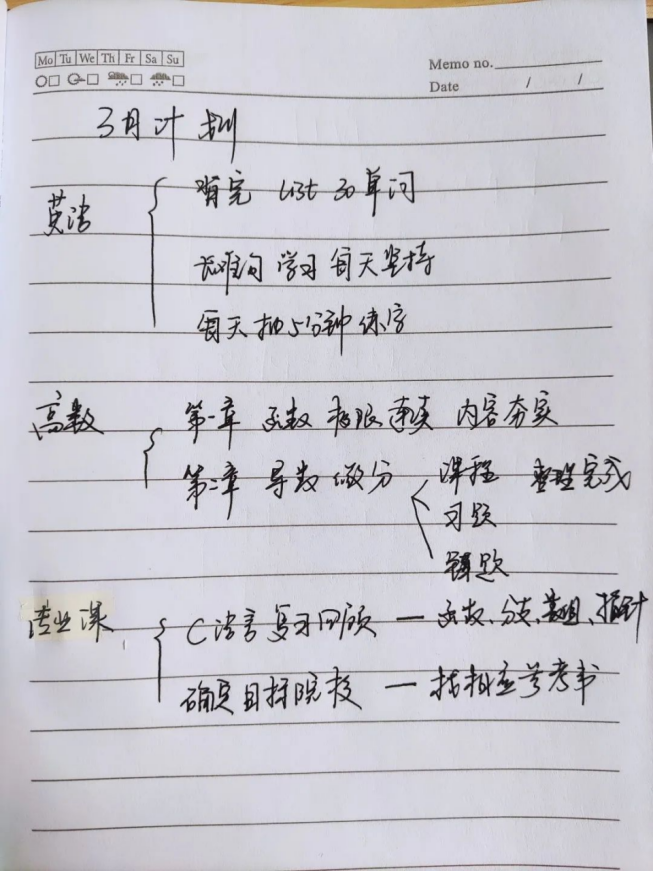 Mo Tu We Th Fr Sa Su
Memo no.
Date / /
3月计划
英语
背完 List 30 单词
长难句 学习 每天坚持
每天抽5分钟 练字
高数
第一章 函数 极限 连续 内容夯实
第二章 导数 微分
课程 整理完成
习题
错题
专业课
C语言 复习回顾 — 函数、分支、数组、指针
确定目标院校 — 找相应参考书